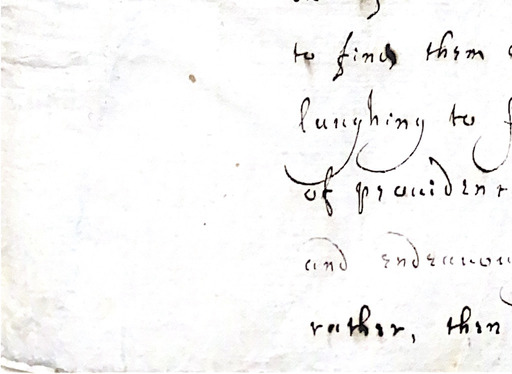 to find them
lunghing to
of prouident
and endeauou
rather, then